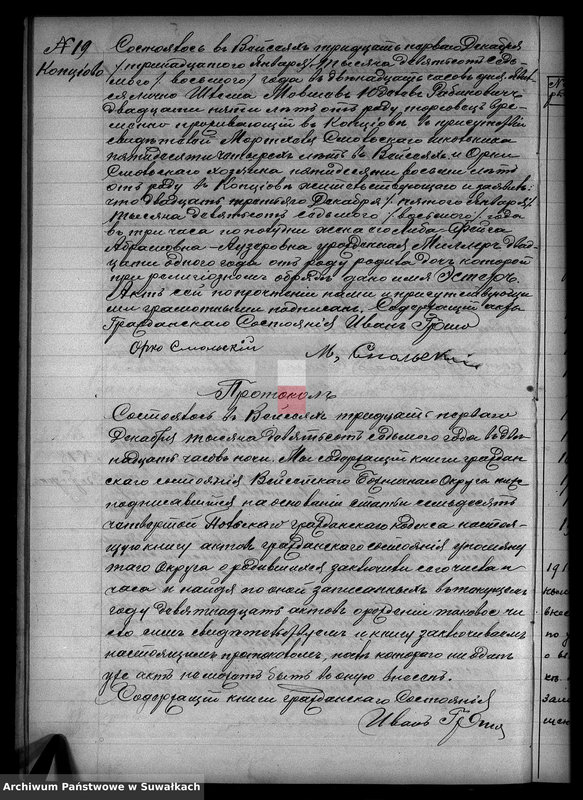 № 19
Концiово
Состоялось въ Вейсеяхъ тридцать перваго Декабря
/ тринадцатаго Января / тысяча девятьсотъ седь-
мого / восьмого / года въ двѣнадцать часовъ дня. Яви-
лся лично Мовшевъ Рабиновичъ
двадцати пяти лѣтъ отъ роду торговецъ вре-
менно проживающiй въ Копцiовѣ въ присутствiи
свидѣтелей Мортхеля Смольскаго школьника
пятидесяти четырехъ лѣтъ въ Вейсеяхъ и Орки
Смольскаго хозяина пятидесяти восьми лѣтъ
отъ роду въ Копцiовѣ жительствующаго и заявилъ:
что двадцать третьяго Декабря / пятого Января /
тысяча девятьсотъ седьмого / восьмого / года
въ три часа пополудни жена его Либа-Фрейга
Абрамовна-Лузеровна урожденная Миллеръ двад-
цати одного года отъ роду родила дочь которой
при религiозномъ обрядѣ дано имя Эстеръ.
Актъ сей по прочтенiи нами и присутствующи-
ми грамотными подписанъ. Содержащiй акты
Гражданскаго Состоянiя Иванъ
Орко Смольскiй М. Смольскiй
Протоколъ
Состоялось въ Вейсеяхъ тридцать перваго
Декабря тысяча девятьсотъ седьмого года въ двѣ-
надцать часовъ ночи. Мы содержащiй книги граждан-
скаго состоянiя Вейсейскаго Божничнаго Округа ниже
подписавшiйся на основанiи статьи семьдесятъ
четвертой Польскаго гражданскаго Кодекса настоя-
щую книгу актовъ гражданскаго состоянiя упомяну-
таго Округа о родившихся заключили сего числа и
часа и найдя по оной записанныхъ въ текущемъ
году девятнадцать актовъ о рожденiи таковое чи-
сло симъ свидѣтельствуемъ и книгу заключаемъ
настоящимъ протоколомъ, послѣ котораго ни одинъ
уже актъ не можетъ быть въ оную внесенъ.
Содержащiй книги гражданскаго Состоянiя
Иванъ
Archiwum Państwowe w Suwałkach